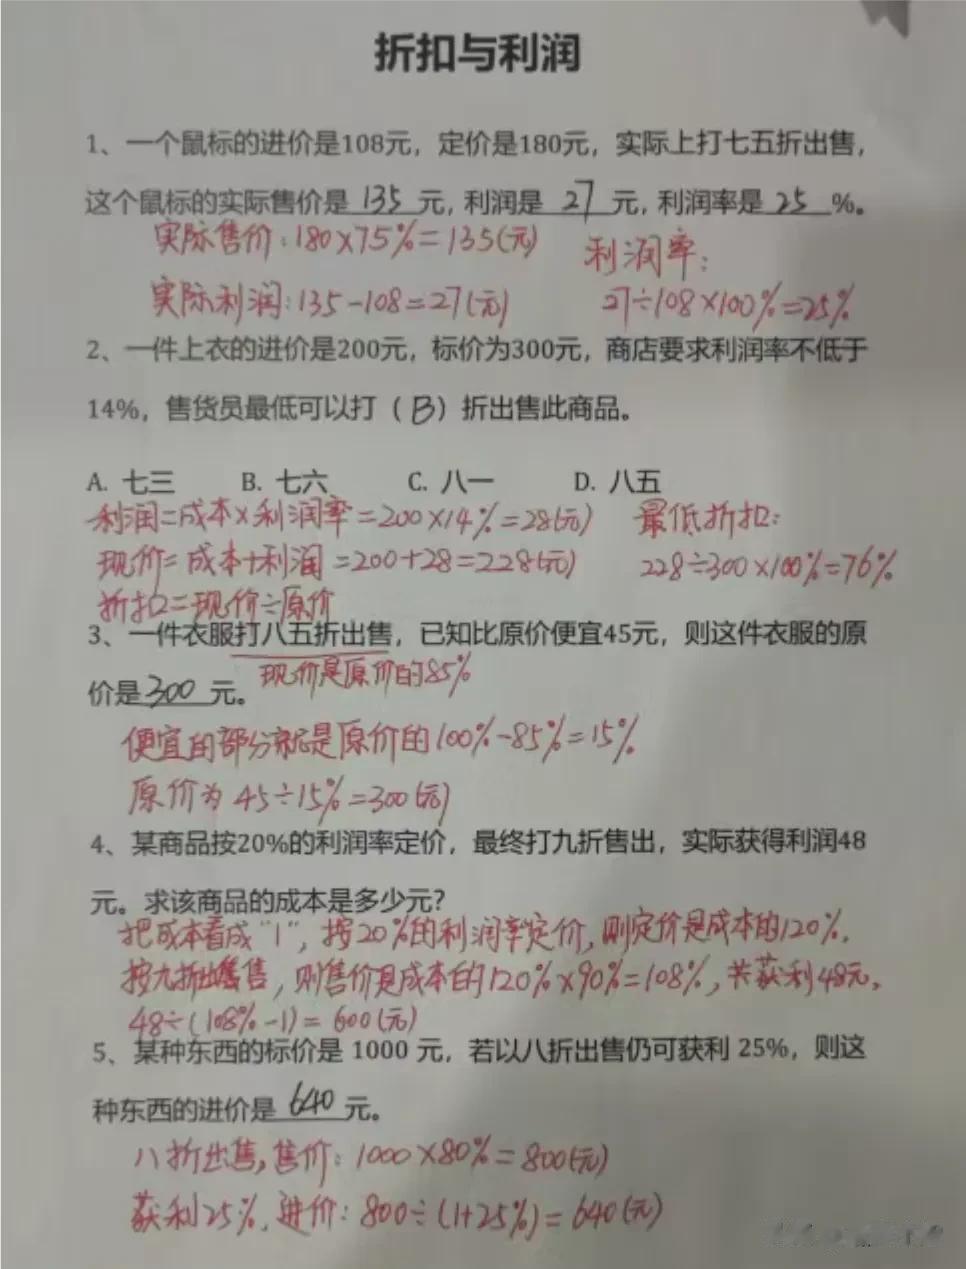 折扣与利润
1、一个鼠标的进价是108元，定价是180元，实际上打七五折出售，
这个鼠标的实际售价是 135 元，利润是 27 元，利润率是 25 %。
实际售价：180×75%=135(元)
利润率：
实际利润：135-108=27(元)
27÷108×100%=25%
2、一件上衣的进价是200元，标价为300元，商店要求利润率不低于
14%，售货员最低可以打（B）折出售此商品。
A. 七三 B. 七六 C. 八一 D. 八五
利润=成本×利润率=200×14%=28(元)
最低折扣：
现价=成本+利润=200+28=228(元)
228÷300×100%=76%
折扣=现价÷原价
3、一件衣服打八五折出售，已知比原价便宜45元，则这件衣服的原
现价是原价的85%
价是 300 元。
便宜的部分就是原价的100%-85%=15%
原价为 45÷15%=300(元)
4、某商品按20%的利润率定价，最终打九折售出，实际获得利润48
元。求该商品的成本是多少元？
把成本看成“1”，按20%的利润率定价，则定价是成本的120%.
按九折出售，则售价是成本的120%×90%=108%，共获利48元。
48÷(108%-1)=600(元)
5、某种东西的标价是 1000 元，若以八折出售仍可获利 25%，则这
种东西的进价是 640 元。
八折出售，售价：1000×80%=800(元)
获利25%，进价：800÷(1+25%)=640(元)